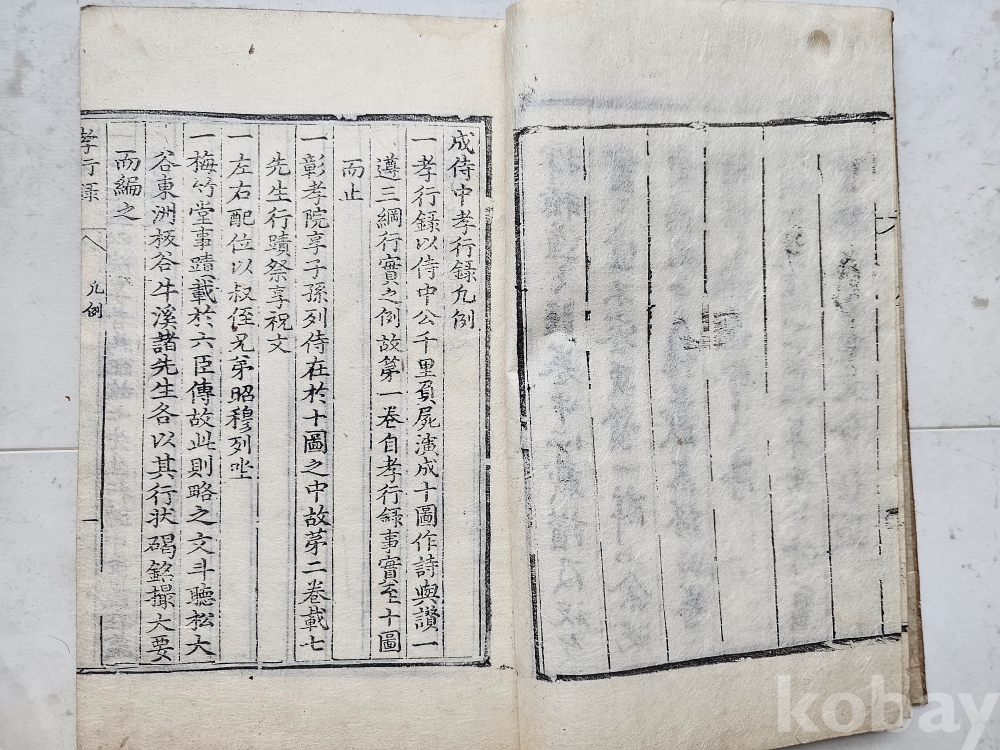 成侍中孝行錄凡例
一孝行錄以侍中公千里負屍演成十圖作詩與讚一
遵三綱行實之例故第一卷自孝行錄事實至十圖
而止
一彰孝院享子孫列侍在於十圖之中故第二卷載七
先生行蹟祭享祝文
一左右配位以叔侄兄弟昭穆列坐
一梅竹堂事蹟載於六臣傳故此則略之文斗聽松大
谷東洲板谷牛溪諸先生各以其行狀碣銘撮大要
而編之
孝行錄 凡例 一
kobay